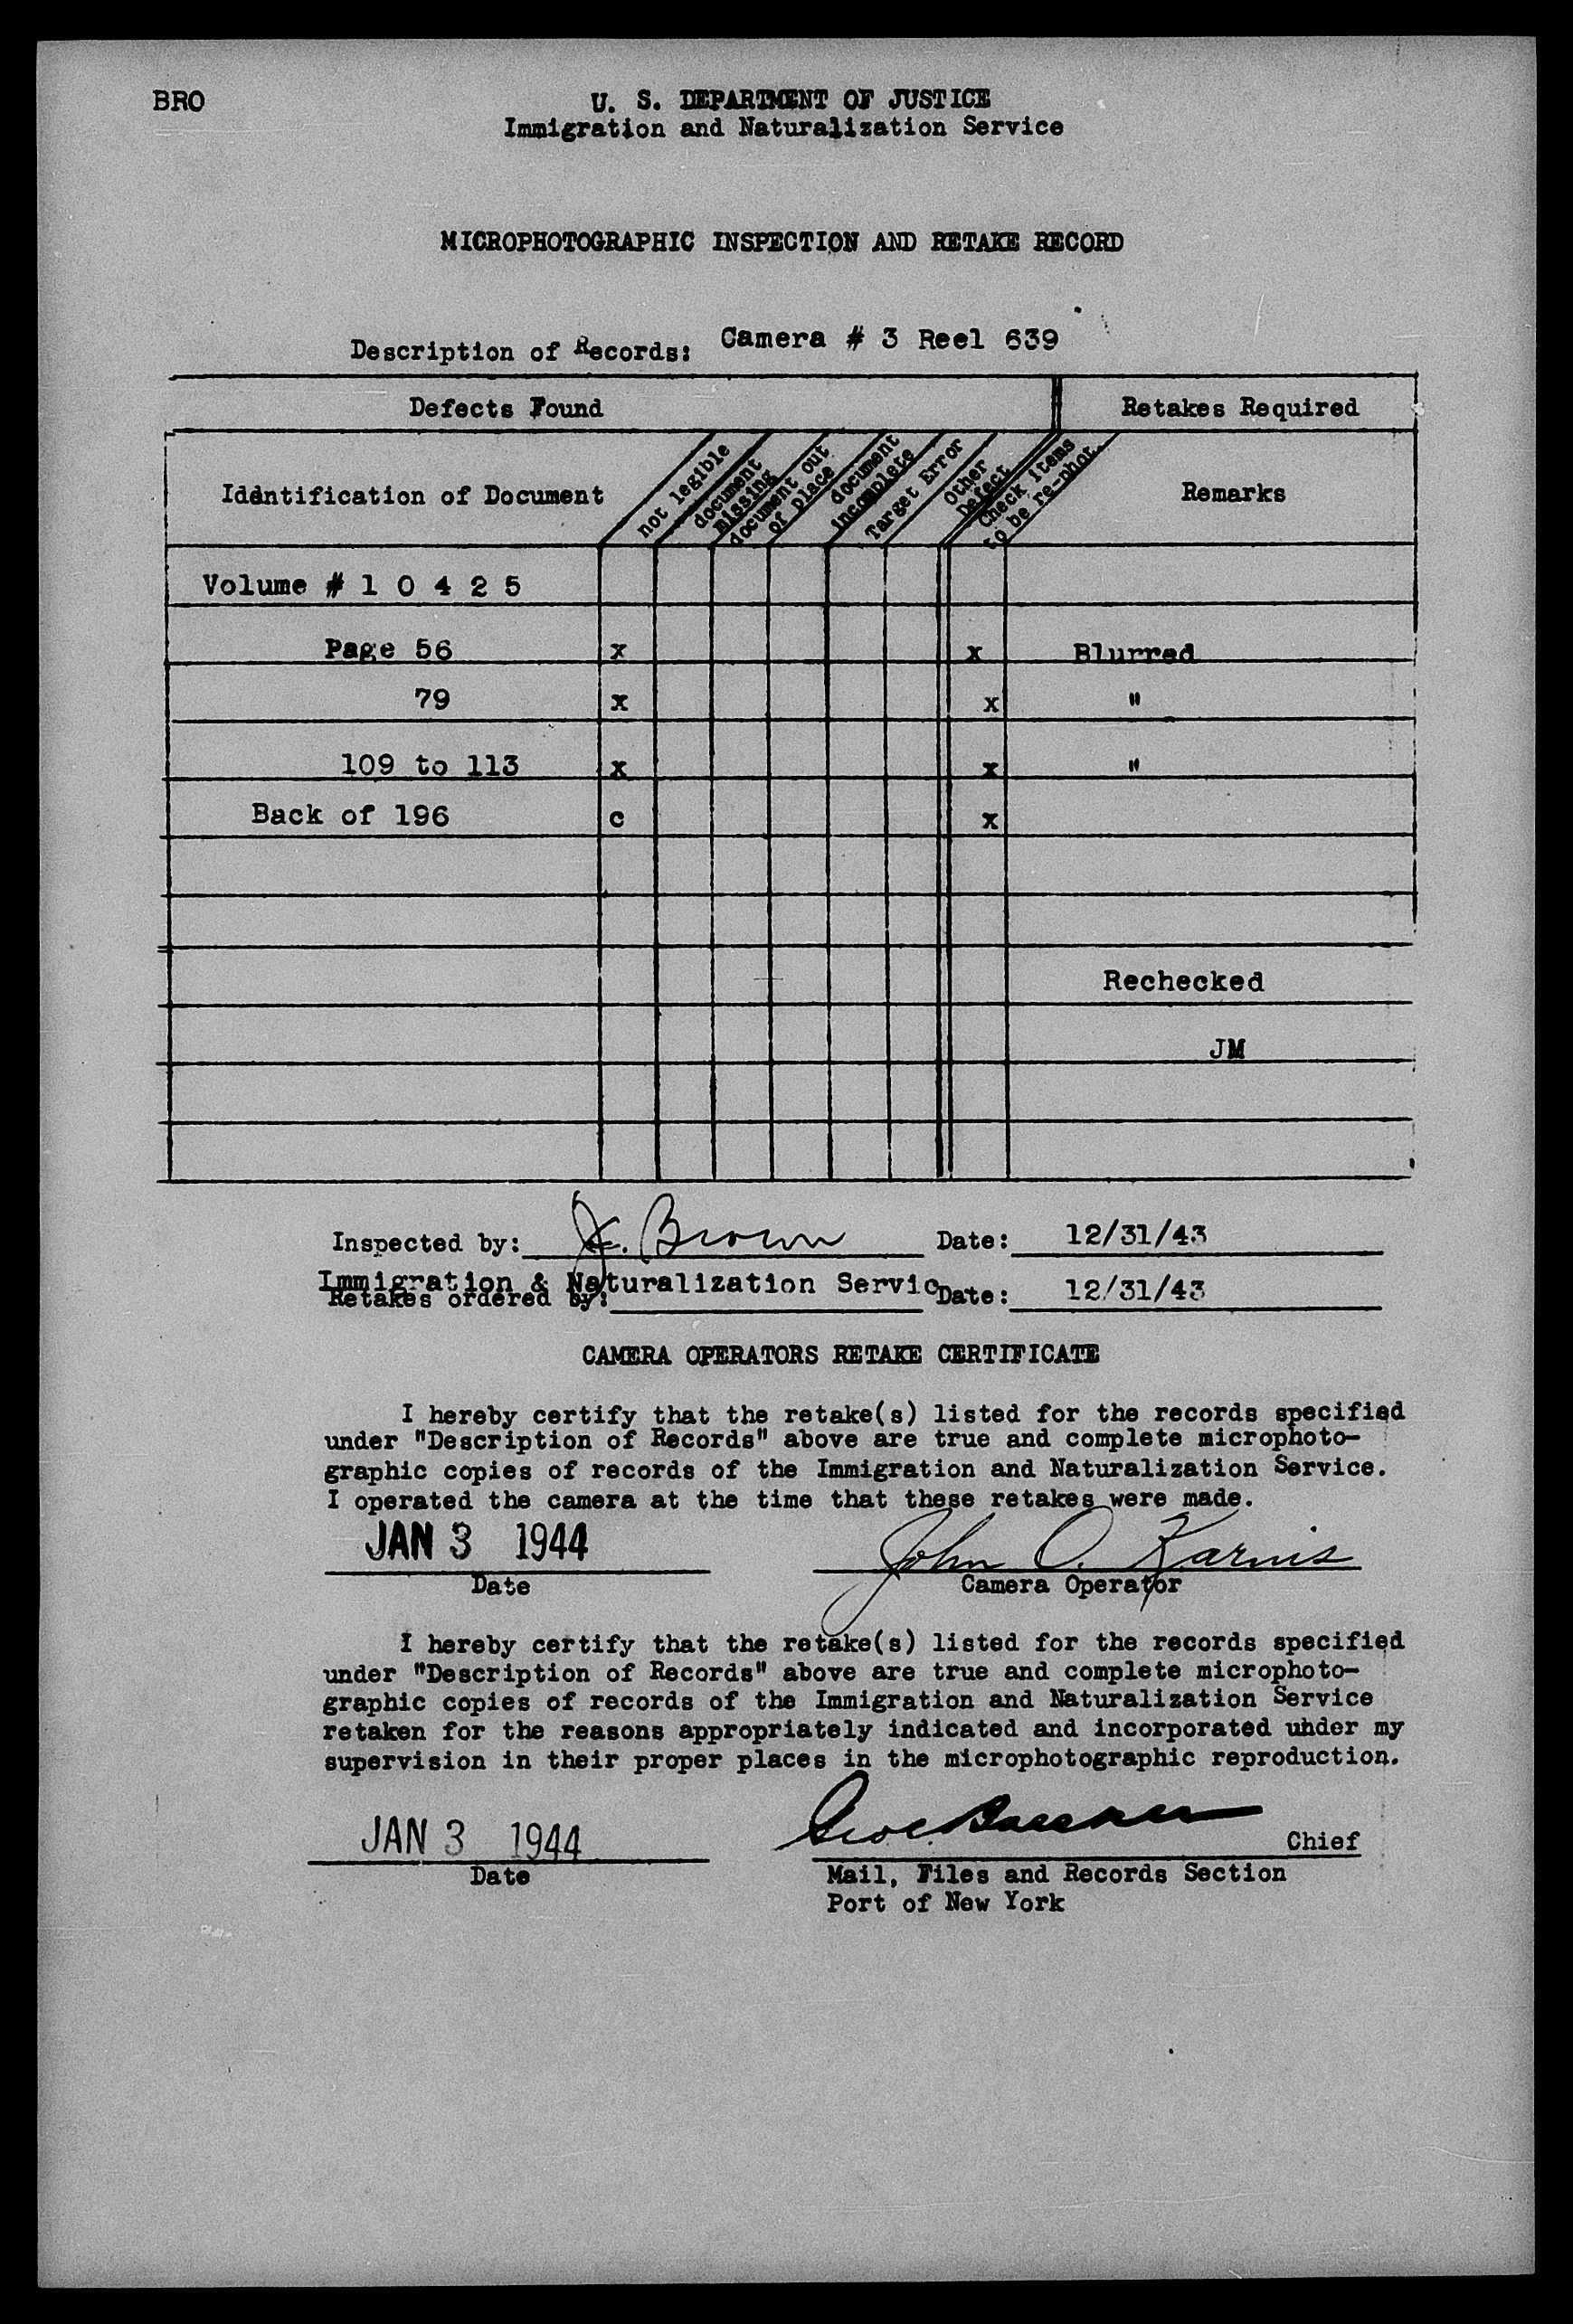 BRO
U. S. DEPARTMENT OF JUSTICE
Immigration and Naturalization Service
MICROPHOTOGRAPHIC INSPECTION AND RETAKE RECORD
Description of Records: Camera # 3 Reel 639
Defects Found Retakes Required
Identification of Document not legible document missing document out of place document incomplete Target Error Other Defect Check items to be re-phot. Remarks
Volume # 1 0 4 2 5
Page 56 x x Blurred
79 x x "
109 to 113 x x "
Back of 196 c x
Rechecked
JM
Inspected by: J. Brown Date: 12/31/43
Immigration & Naturalization Servic
Retakes ordered by: Date: 12/31/43
CAMERA OPERATORS RETAKE CERTIFICATE
I hereby certify that the retake(s) listed for the records specified
under "Description of Records" above are true and complete microphoto-
graphic copies of records of the Immigration and Naturalization Service.
I operated the camera at the time that these retakes were made.
JAN 3 1944 John O. Karnis
Date Camera Operator
I hereby certify that the retake(s) listed for the records specified
under "Description of Records" above are true and complete microphoto-
graphic copies of records of the Immigration and Naturalization Service
retaken for the reasons appropriately indicated and incorporated under my
supervision in their proper places in the microphotographic reproduction.
JAN 3 1944 Chief
Date Mail, Files and Records Section
Port of New York